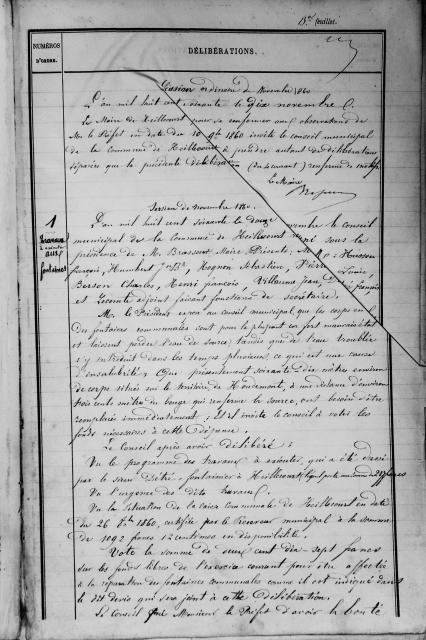 13e feuillet.
NUMÉROS
D'ORDRE.
DÉLIBÉRATIONS.
Session ordinaire de Novembre 1860
L'an mil huit cent soixante le dix novembre
Le Maire de Heillecourt pour se conformer aux observations de
Mr le Préfet en date du 10 9bre 1860 invite le conseil municipal
de la Commune de Heillecourt à prendre autant de délibérations
séparées que la précédente délibération renferme de
Le Maire
Session de novembre 1860.
1
Travaux
à exécuter
aux
fontaines
L'an mil huit cent soixante le douze novembre le Conseil
municipal de la Commune de Heillecourt réuni sous la
présidence de M. Brassout Maire Présents: M
françois, Humbert Jn Bte, Rognon Sébastien, Pierre Louis,
Berson Charles, Henri françois, Villaume Jean, françois
et Lecomte adjoint faisant fonctions de secrétaire.
Mr. le Président expose au Conseil municipal, que les corps en
des fontaines communales sont pour la plupart en fort mauvais état
et laissent perdre l'eau de source; tandis que de l'eau troublée
s'y introduit dans les temps pluvieux, ce qui est une cause
d'insalubrité, Que présentement soixante dix mètres environ
de corps situés sur le territoire de Houdemont, à une distance d'environ
trois cents mètres du bouge qui renferme la source, ont besoin d'être
remplacés immédiatement; et il invite le conseil à voter les
fonds nécessaires à cette Dépense.
Le Conseil après avoir Délibéré:
Vu le programme des travaux à exécuter, qui a été dressé
par le sieur fontainier à Heillecourt
Vu l'urgence des dits travaux.
Vu la situation de la caisse communale de Heillecourt en date
du 26 8bre 1860, certifiée par le Receveur municipal à la somme
de 1092 francs 12 centimes en disponibilité.
Vote la somme de deux cent dix-sept francs
sur les fonds libres de l'exercice courant pour être affectée
à la réparation des fontaines communales comme il est indiqué dans
le dit devis qui sera joint à cette Délibération.
Le Conseil prie Monsieur le Préfet d'avoir la bonté